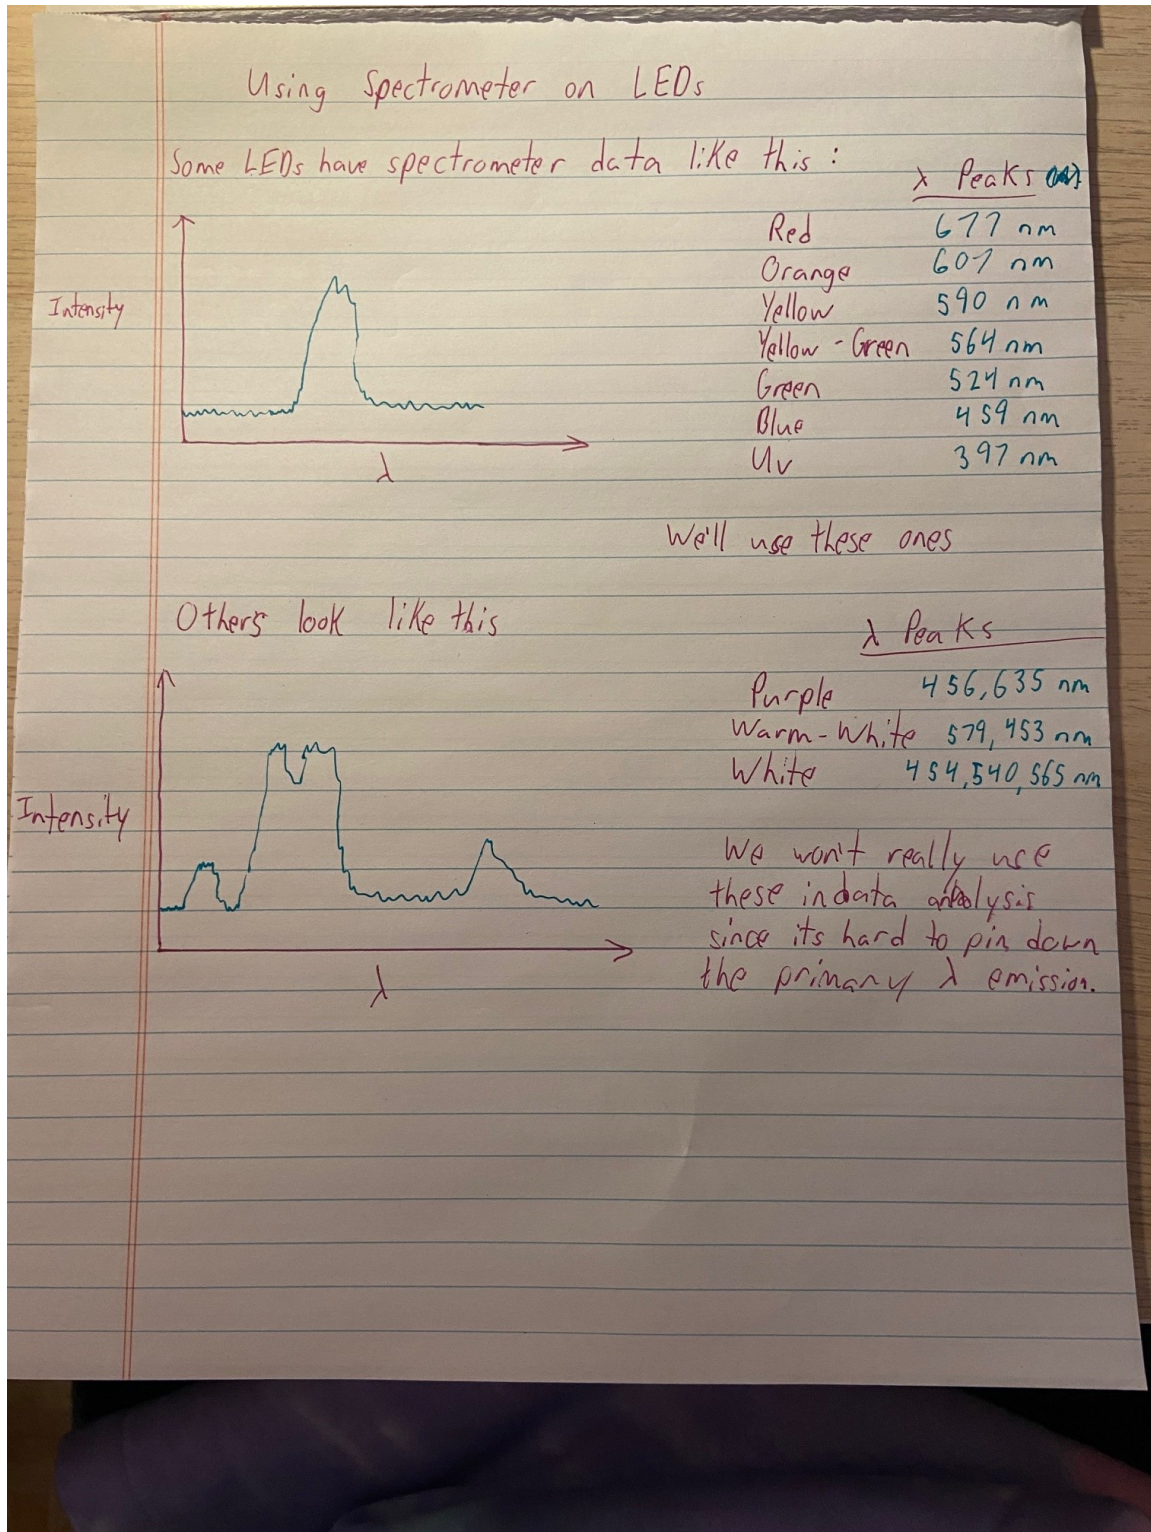 Using Spectrometer on LEDs
Some LEDs have spectrometer data like this :
λ Peaks
Red 677 nm
Orange 607 nm
Yellow 590 nm
Yellow - Green 564 nm
Green 524 nm
Blue 459 nm
UV 397 nm
Intensity
λ
We'll use these ones
Others look like this
λ Peaks
Purple 456,635 nm
Warm-White 579, 453 nm
White 454,540,565 nm
Intensity
λ
We won't really use
these in data analysis
since its hard to pin down
the primary λ emission.